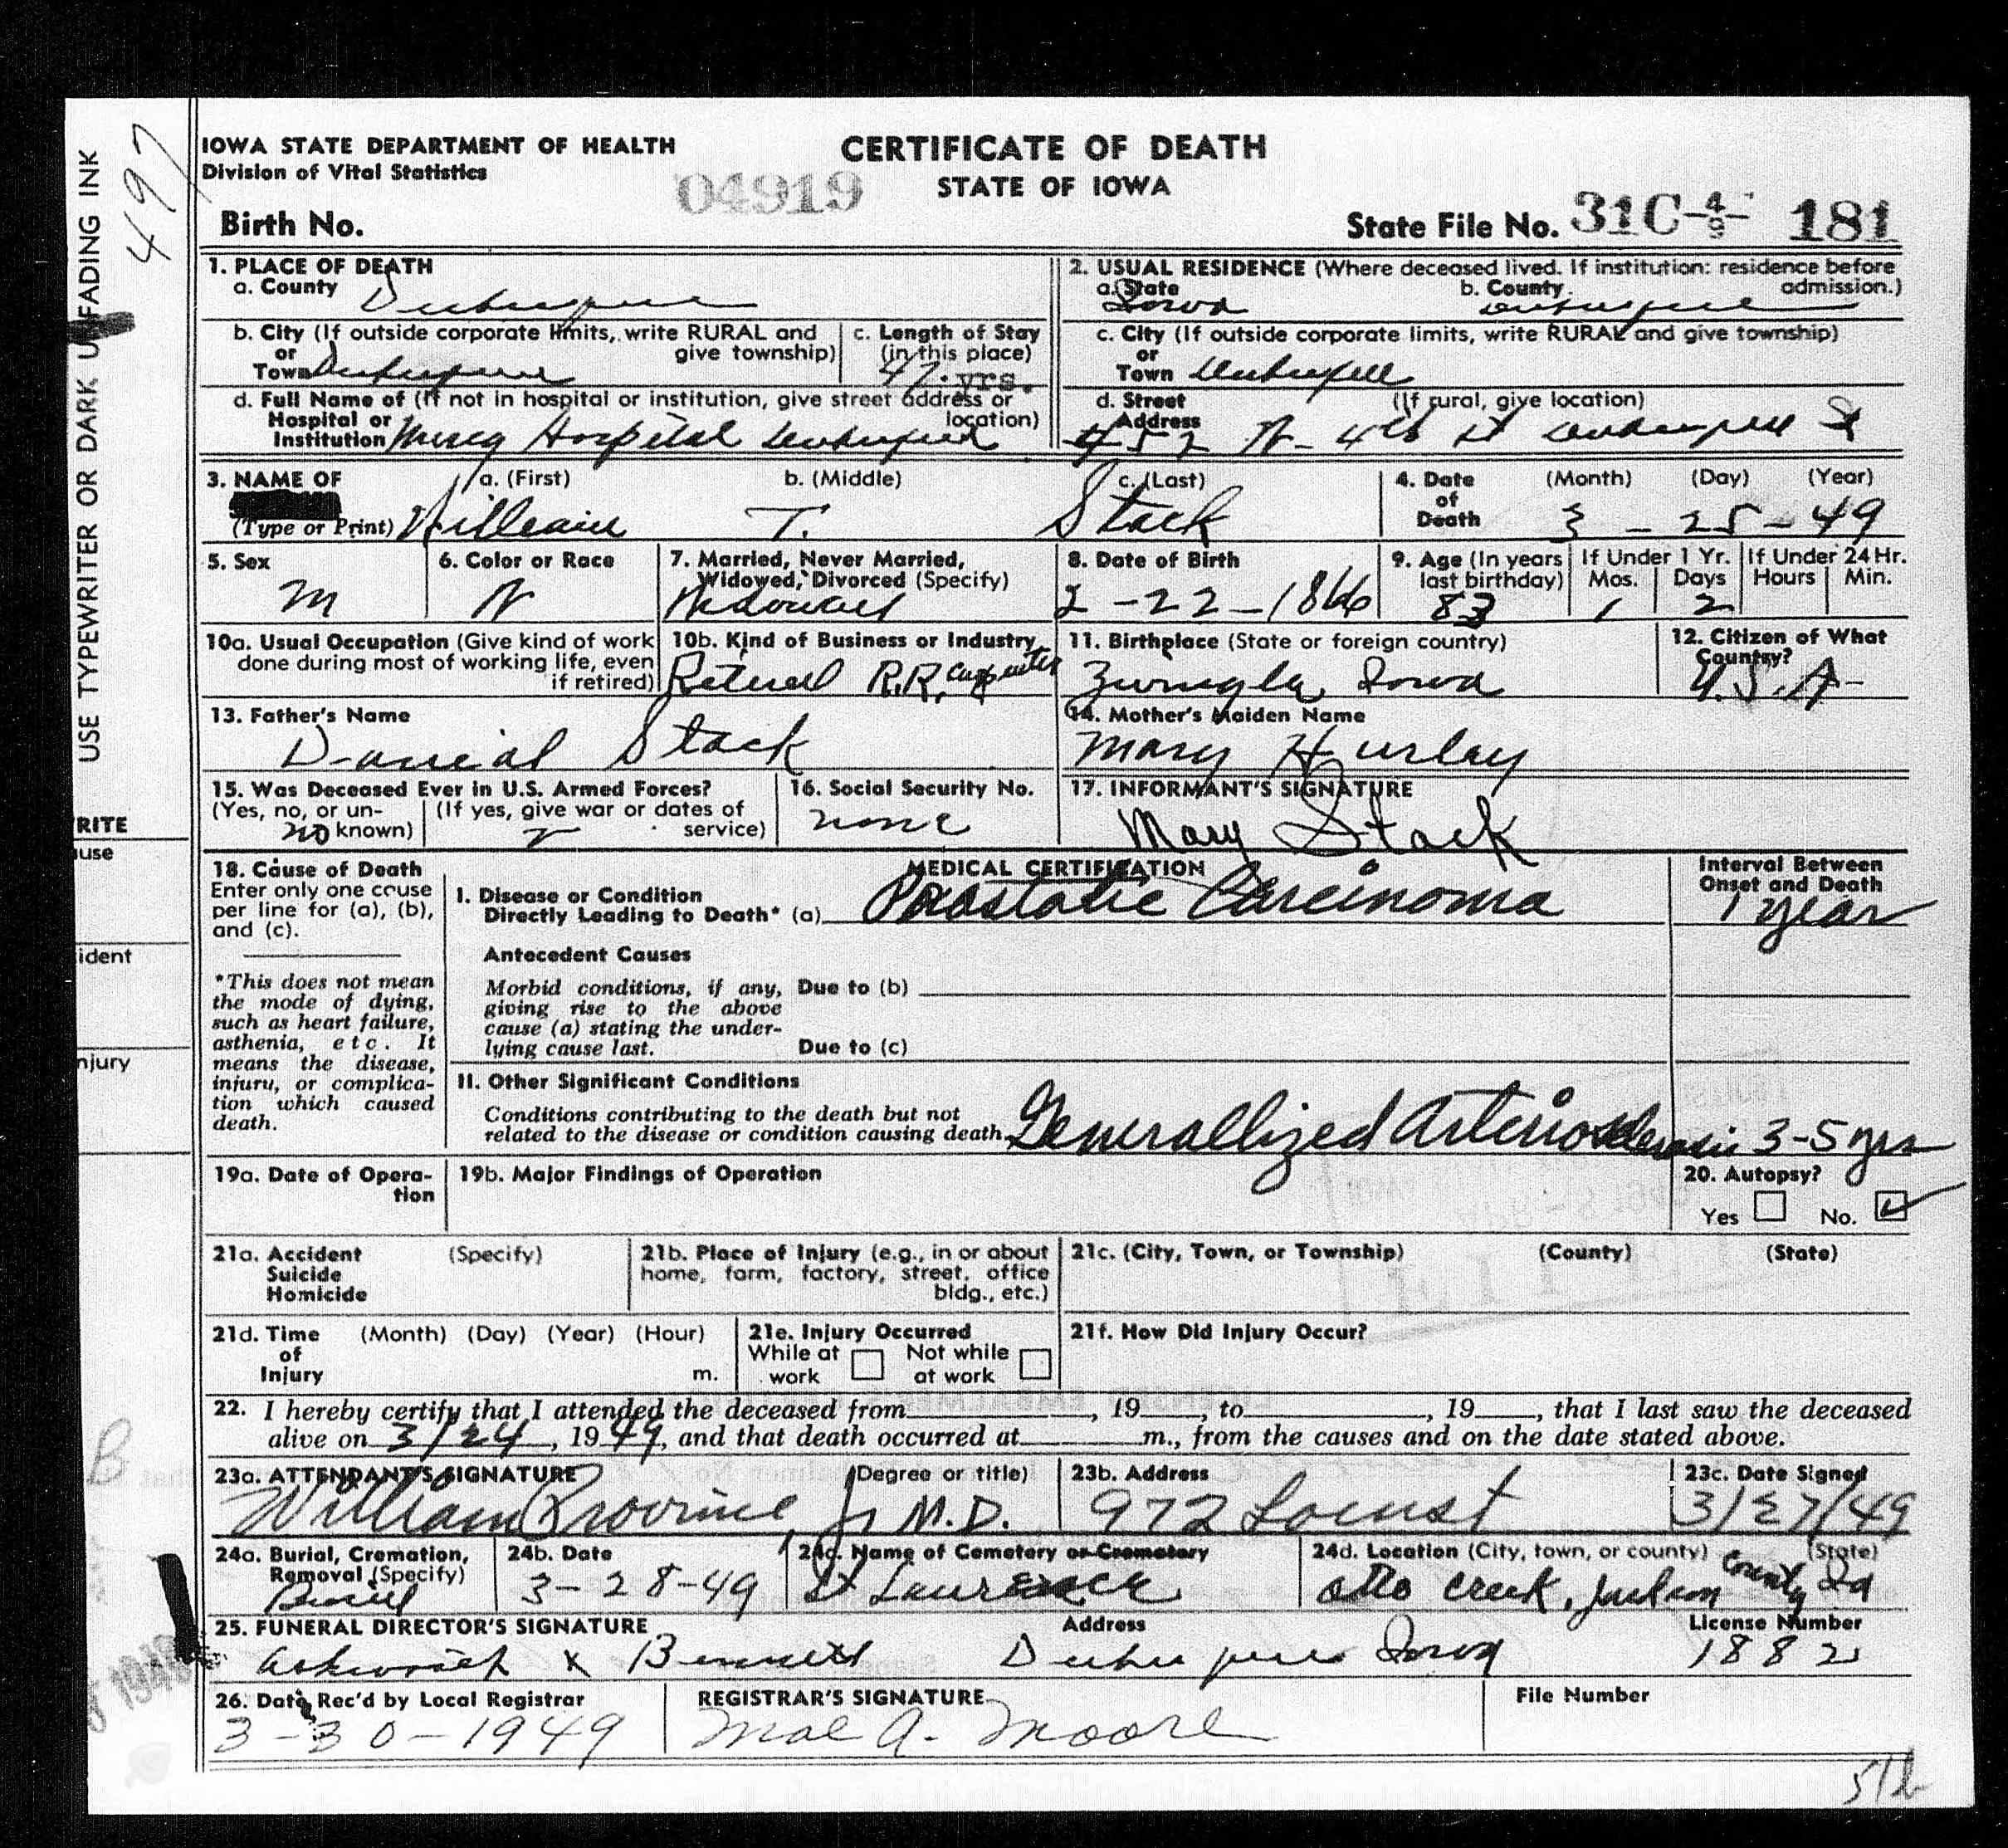 USE TYPEWRITER OR DARK UNFADING INK
497
IOWA STATE DEPARTMENT OF HEALTH
Division of Vital Statistics
04919
CERTIFICATE OF DEATH
STATE OF IOWA
Birth No.
State File No. 31C-49- 181
1. PLACE OF DEATH
a. County Dubuque
2. USUAL RESIDENCE (Where deceased lived. If institution: residence before admission.)
a. State Iowa b. County Dubuque
b. City (If outside corporate limits, write RURAL and give township)
or
Town Dubuque
c. Length of Stay
(in this place)
47 yrs.
c. City (If outside corporate limits, write RURAL and give township)
or
Town Dubuque
d. Full Name of (If not in hospital or institution, give street address or location)
Hospital or
Institution Mercy Hospital Dubuque
d. Street (If rural, give location)
Address
452 N- 4th St Dubuque
3. NAME OF
(Type or Print)
a. (First) b. (Middle) c. (Last)
William T. Stack
4. Date of Death
(Month) (Day) (Year)
3 - 25 - 49
5. Sex
M
6. Color or Race
W
7. Married, Never Married,
Widowed, Divorced (Specify)
Widowed
8. Date of Birth
2-22-1866
9. Age (In years
last birthday)
83
If Under 1 Yr.
Mos. Days
1 2
If Under 24 Hr.
Hours Min.
10a. Usual Occupation (Give kind of work
done during most of working life, even
if retired)
10b. Kind of Business or Industry
Retired R.R. Carpenter
11. Birthplace (State or foreign country)
Zwingle Iowa
12. Citizen of What
Country?
U.S.A-
13. Father's Name
Danial Stack
14. Mother's Maiden Name
Mary Hurley
15. Was Deceased Ever in U.S. Armed Forces?
(Yes, no, or unknown) (If yes, give war or dates of service)
no
16. Social Security No.
none
17. INFORMANT'S SIGNATURE
Mary Stack
RITE
use
ident
njury
18. Cause of Death
Enter only one cause
per line for (a), (b),
and (c).
*This does not mean
the mode of dying,
such as heart failure,
asthenia, etc. It
means the disease,
injury, or complica-
tion which caused
death.
MEDICAL CERTIFICATION
I. Disease or Condition
Directly Leading to Death* (a) Prostatic Carcinoma
Interval Between
Onset and Death
1 year
Antecedent Causes
Morbid conditions, if any, Due to (b)
giving rise to the above
cause (a) stating the under-
lying cause last. Due to (c)
II. Other Significant Conditions
Conditions contributing to the death but not
related to the disease or condition causing death. Generallized Arteriosclerosis 3-5 yrs
19a. Date of Opera-
tion
19b. Major Findings of Operation
20. Autopsy?
Yes No.
21a. Accident (Specify)
Suicide
Homicide
21b. Place of Injury (e.g., in or about
home, farm, factory, street, office
bldg., etc.)
21c. (City, Town, or Township) (County) (State)
21d. Time (Month) (Day) (Year) (Hour)
of
Injury m.
21e. Injury Occurred
While at Not while
work at work
21f. How Did Injury Occur?
22. I hereby certify that I attended the deceased from , 19 , to , 19 , that I last saw the deceased
alive on 3/24, 1949, and that death occurred at m., from the causes and on the date stated above.
23a. ATTENDANT'S SIGNATURE (Degree or title)
William Provine, Jr M.D.
23b. Address
972 Locust
23c. Date Signed
3/27/49
24a. Burial, Cremation,
Removal (Specify)
Burial
24b. Date
3-28-49
24c. Name of Cemetery or Crematory
St Laurence
24d. Location (City, town, or county) (State)
Otto Creek, Jackson County Ia
25. FUNERAL DIRECTOR'S SIGNATURE Address License Number
Bennett Dubuque Iowa 1882
26. Date Rec'd by Local Registrar
3-30-1949
REGISTRAR'S SIGNATURE
Mae A. Moore
File Number